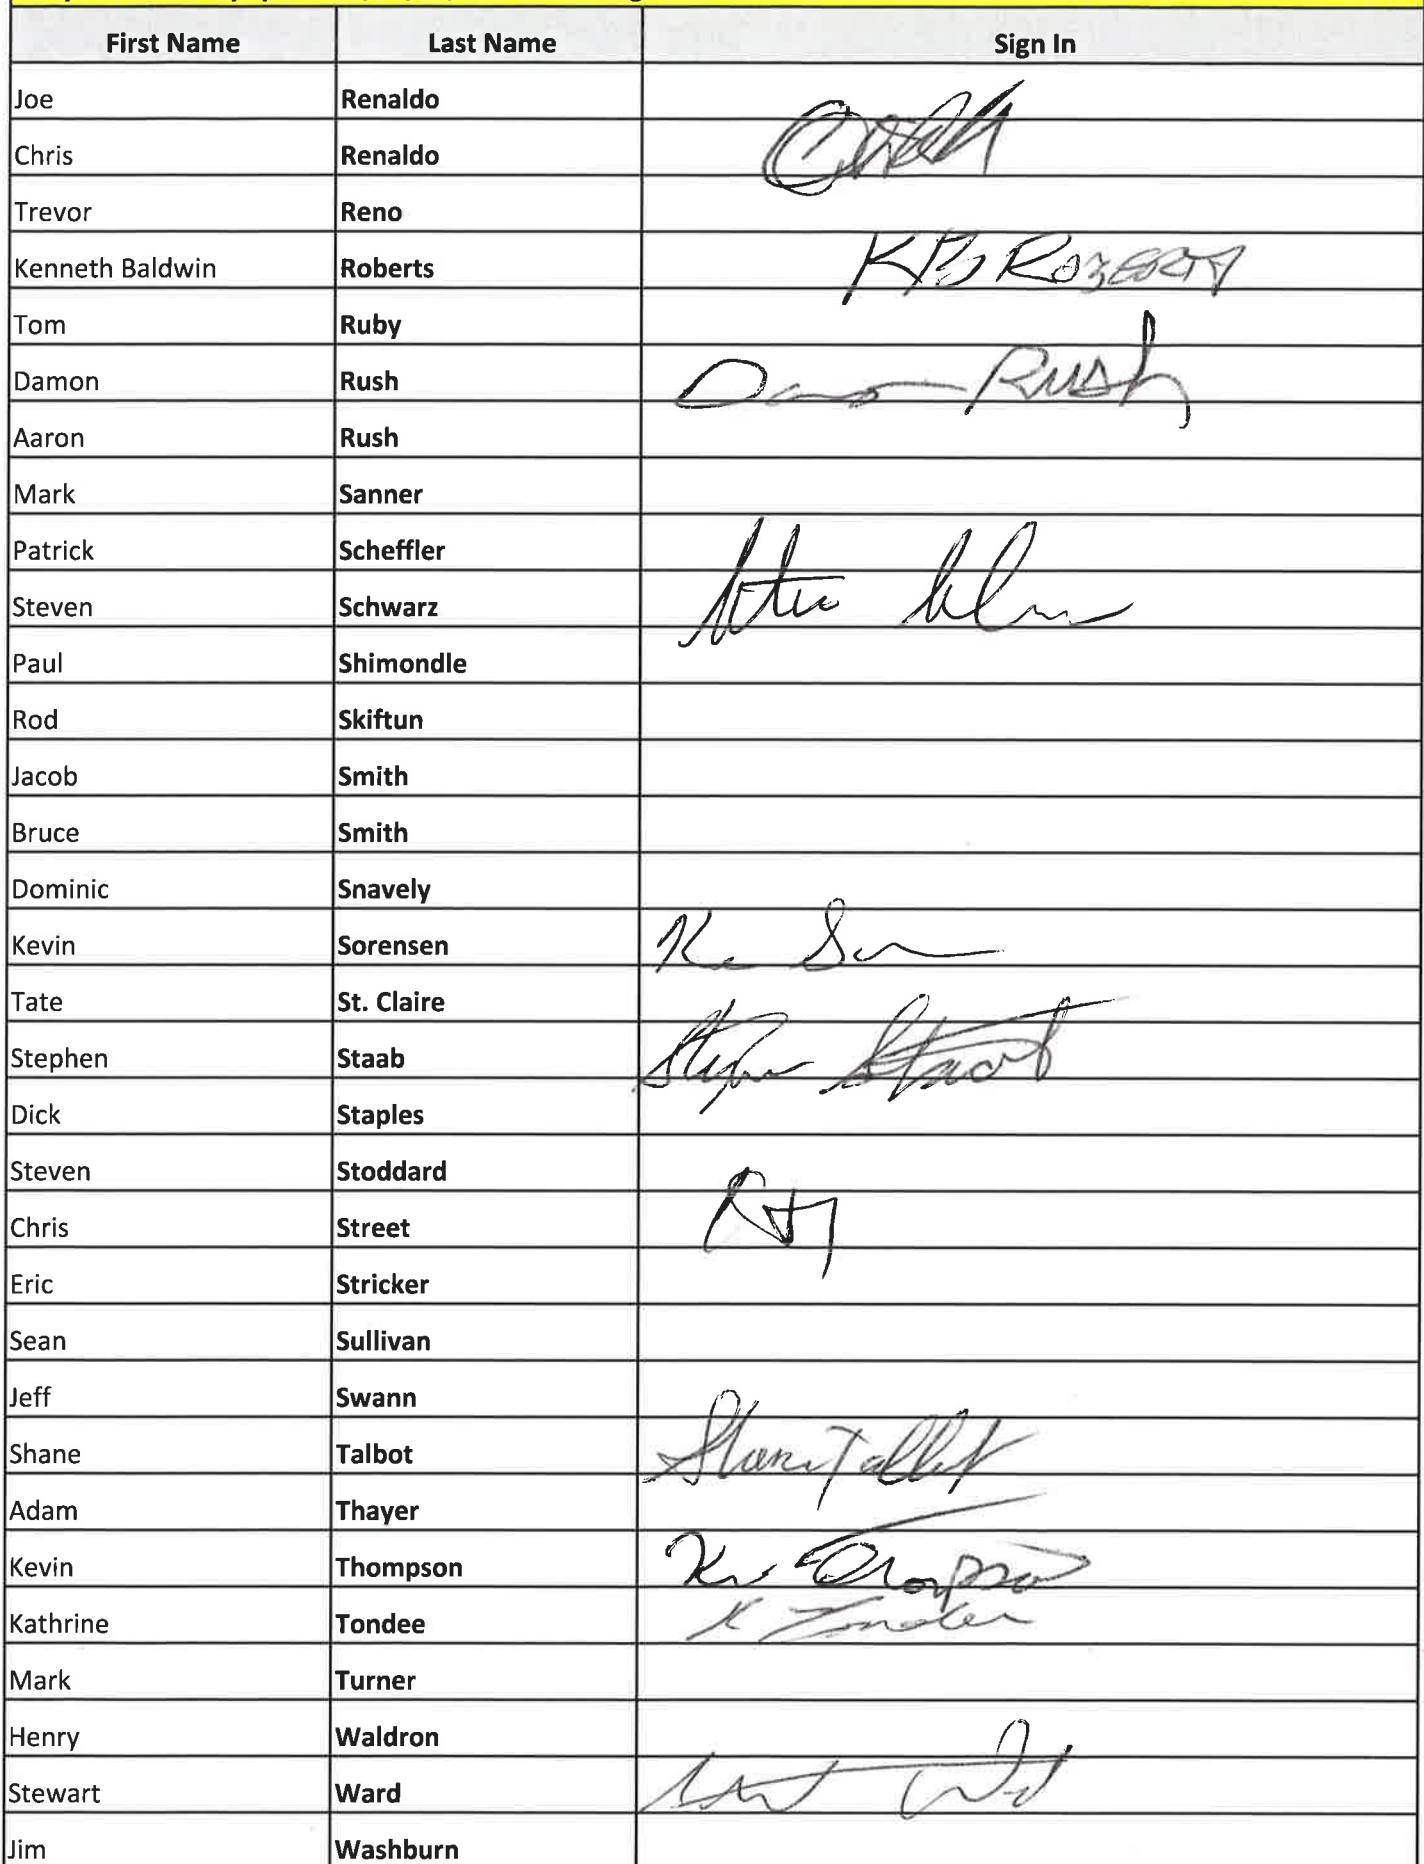 First Name Last Name Sign In
Joe Renaldo
Chris Renaldo
Trevor Reno
Kenneth Baldwin Roberts KB Roberts
Tom Ruby
Damon Rush Damon Rush
Aaron Rush
Mark Sanner
Patrick Scheffler
Steven Schwarz
Paul Shimondle
Rod Skiftun
Jacob Smith
Bruce Smith
Dominic Snavely
Kevin Sorensen
Tate St. Claire
Stephen Staab Stephen Staab
Dick Staples
Steven Stoddard
Chris Street
Eric Stricker
Sean Sullivan
Jeff Swann
Shane Talbot Shane Talbot
Adam Thayer
Kevin Thompson Kev Thompson
Kathrine Tondee K Tondee
Mark Turner
Henry Waldron
Stewart Ward
Jim Washburn